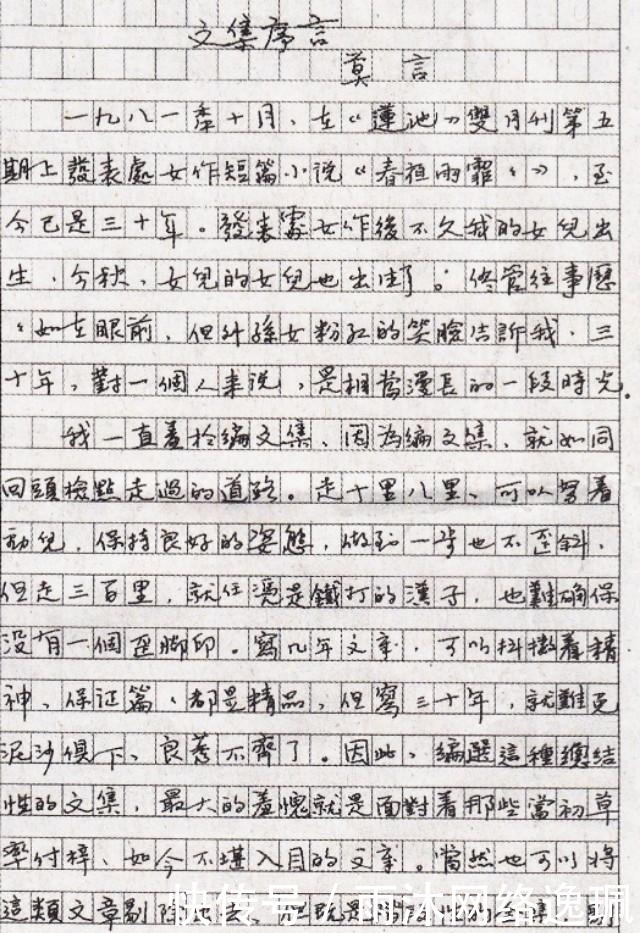 文集序言
莫言
一九八一年十月，在《蓮池》雙月刊第五
期上發表處女作短篇小说《春夜雨霏々》，至
今已是三十年。發表處女作後不久我的女兒出
生，今秋，女兒的女兒也出生了。儘管往事歷
々如在眼前，但外孫女粉红的笑臉告訴我，三
十年，對一個人来说，是相當漫長的一段時光。
我一直羞於編文集，因為編文集，就如同
回頭檢點走過的道路。走十里八里，可以努着
劲兒，保持良好的姿態，做到一步也不歪斜，
但走三百里，就任憑是鐵打的漢子，也難确保
没有一個歪脚印。寫几年文章，可以抖擻着精
神，保证篇々都是精品，但寫三十年，就難免
泥沙俱下，良莠不齊了。因此，編選這種總結
性的文集，最大的羞愧就是面對着那些當初草
率付梓、如今不堪入目的文章。當然也可以将
這類文章剔除出去，但既是
快传号 / 雨沐网络逸珮